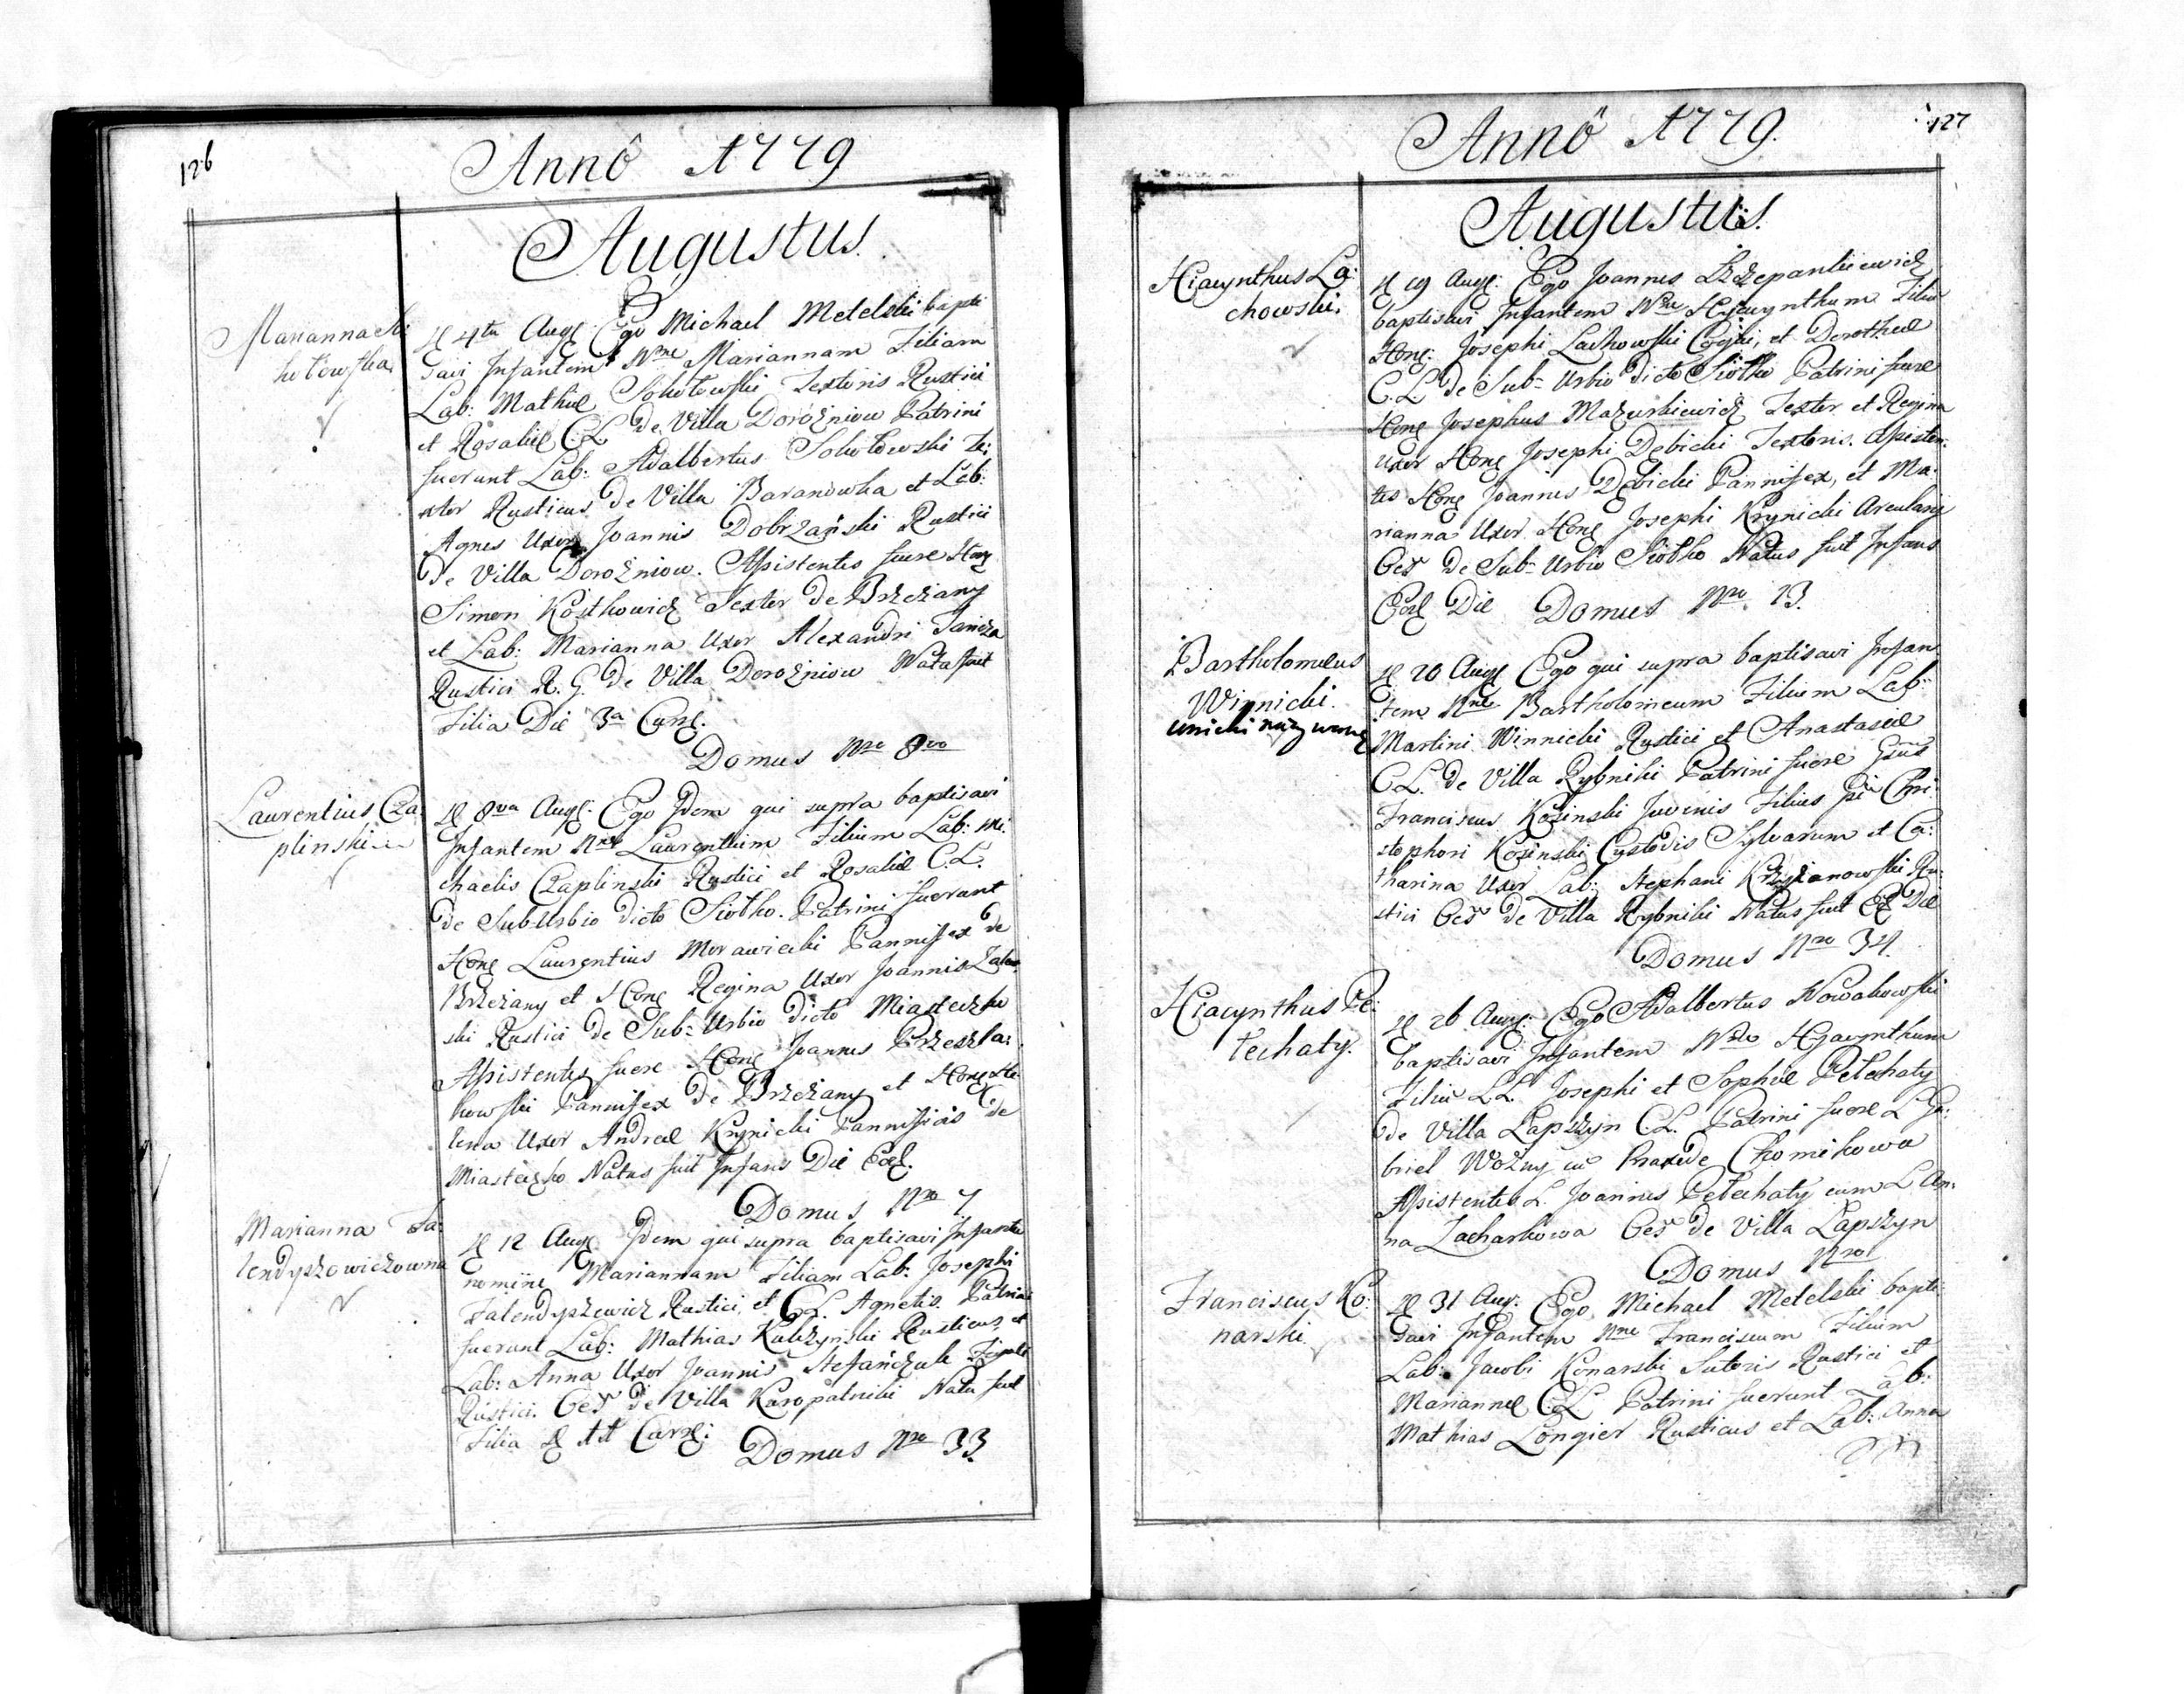 126
Annô 1779
Augustus.
Marianna So
kołowska
D 4ta Augs: Ego Michael Metelski bapti
savi Infantem Nne Mariannam Filiam
Lab: Mathiæ Sokołowski Textoris Rustici
et Rosaliæ C.L. de Villa Dorożniow Patrini
fuerunt Lab: Adalbertus Sokołowski Te:
xtor Rusticus de Villa Baranowka et Lab:
Agnes Uxor Joannis Dobrzański Rustici
de Villa Dorożniow. Assistentes fuere Hon
Simon Kostkowicz Textor de Brzeżany
et Lab: Marianna Uxor Alexandri
Rustici R. G. de Villa Dorożniow Nata fuit
Filia Die 3a Curr.
Domus Nro 8vo
Laurentius Cza
plinski
D 8va Augs: Ego Idem qui supra baptisavi
Infantem Nne Laurentium Filium Lab: Mi:
chaelis Czaplinski Rustici et Rosaliæ C.L.
de Suburbio dicto Siołko. Patrini fuerunt
Hon Laurentius Morawiecki Pannifex de
Brzeżany et Hon Regina Uxor Joannis Zale
ski Rustici de Sub= Urbio dicto Miasteczko
Assistentes fuere Hon Joannes Przeszla:
kowski Pannifex de Brzeżany et Hon He
lena Uxor Andreæ Krynicki Pannificis de
Miasteczko Natus fuit Infans Die Eod.
Domus Nro 7
Marianna Fa:
lendyszowiczowna
D 12 Augs Idem qui supra baptisavi Infante
nomine Mariannam Filiam Lab: Josephi
Falendyszewicz Rustici, et C.L. Agnetis. Patrini
fuerunt Lab: Mathias Kulczyński Rusticus, et
Lab: Anna Uxor Joannis Stefańczuk
Rustici. Oes de Villa Kuropatniki Nata fuit
Filia D 11 Curr:
Domus Nro 33
127
Annô 1779.
Augustus.
Hiacynthus La:
chowski.
D 19 Augs: Ego Joannes Szczepankiewicz
baptisavi Infantem Nne Hyacynthum Filiu
Hon: Josephi Lachowski et Dorotheæ
C.L. de Sub= Urbio dicto Siołko Patrini fuere
Hon Josephus Mazurkiewicz Textor et Regina
Uxor Hon Josephi Dębicki Textoris. Assisten:
tes Hon Joannes Dębicki Pannifex, et Ma:
rianna Uxor Hon Josephi Krynicki Arcularij
Oes de Sub= Urbio Siołko Natus fuit Infans
Eod Die Domus Nro 13.
Bartholomeus
Winnicki.
D 20 Augs Ego qui supra baptisavi Infan
tem Nne Bartholomeum Filium Lab:
Martini Winnicki Rustici et Anastasiæ
C.L. de Villa Rybniki Patrini fuere Gsus
Franciscus Kozinski Juvenis Filius Chri:
stophori Kozinski Custodis Sylvarum et Ca:
tharina Uxor Lab: Stephani Krzyżanowski Ru:
stici Oes de Villa Rybniki Natus fuit Eod Die
Domus Nro 34.
Hiacynthus Pe:
techaty.
D 26 Augs: Ego Adalbertus Nowakowski
baptisavi Infantem Nne Hyacynthum
Filiu LL. Josephi et Sophiæ Petechaty
de Villa Łapszyn C.L. Patrini fuere L Ga:
briel Wożny cu Praxede Chomikowa
Assistentes L. Joannes Petechaty cum L An:
na Zacharkowa Oes de Villa Łapszyn
Domus Nro
Franciscus Ko:
narski
D 31 Aug: Ego Michael Metelski bapti
savi Infantem Nne Franciscum Filium
Lab: Jacobi Konarski Sutoris Rustici et
Mariannæ C.L. Patrini fuerunt Lab:
Mathias Longier Rusticus et Lab: Anna